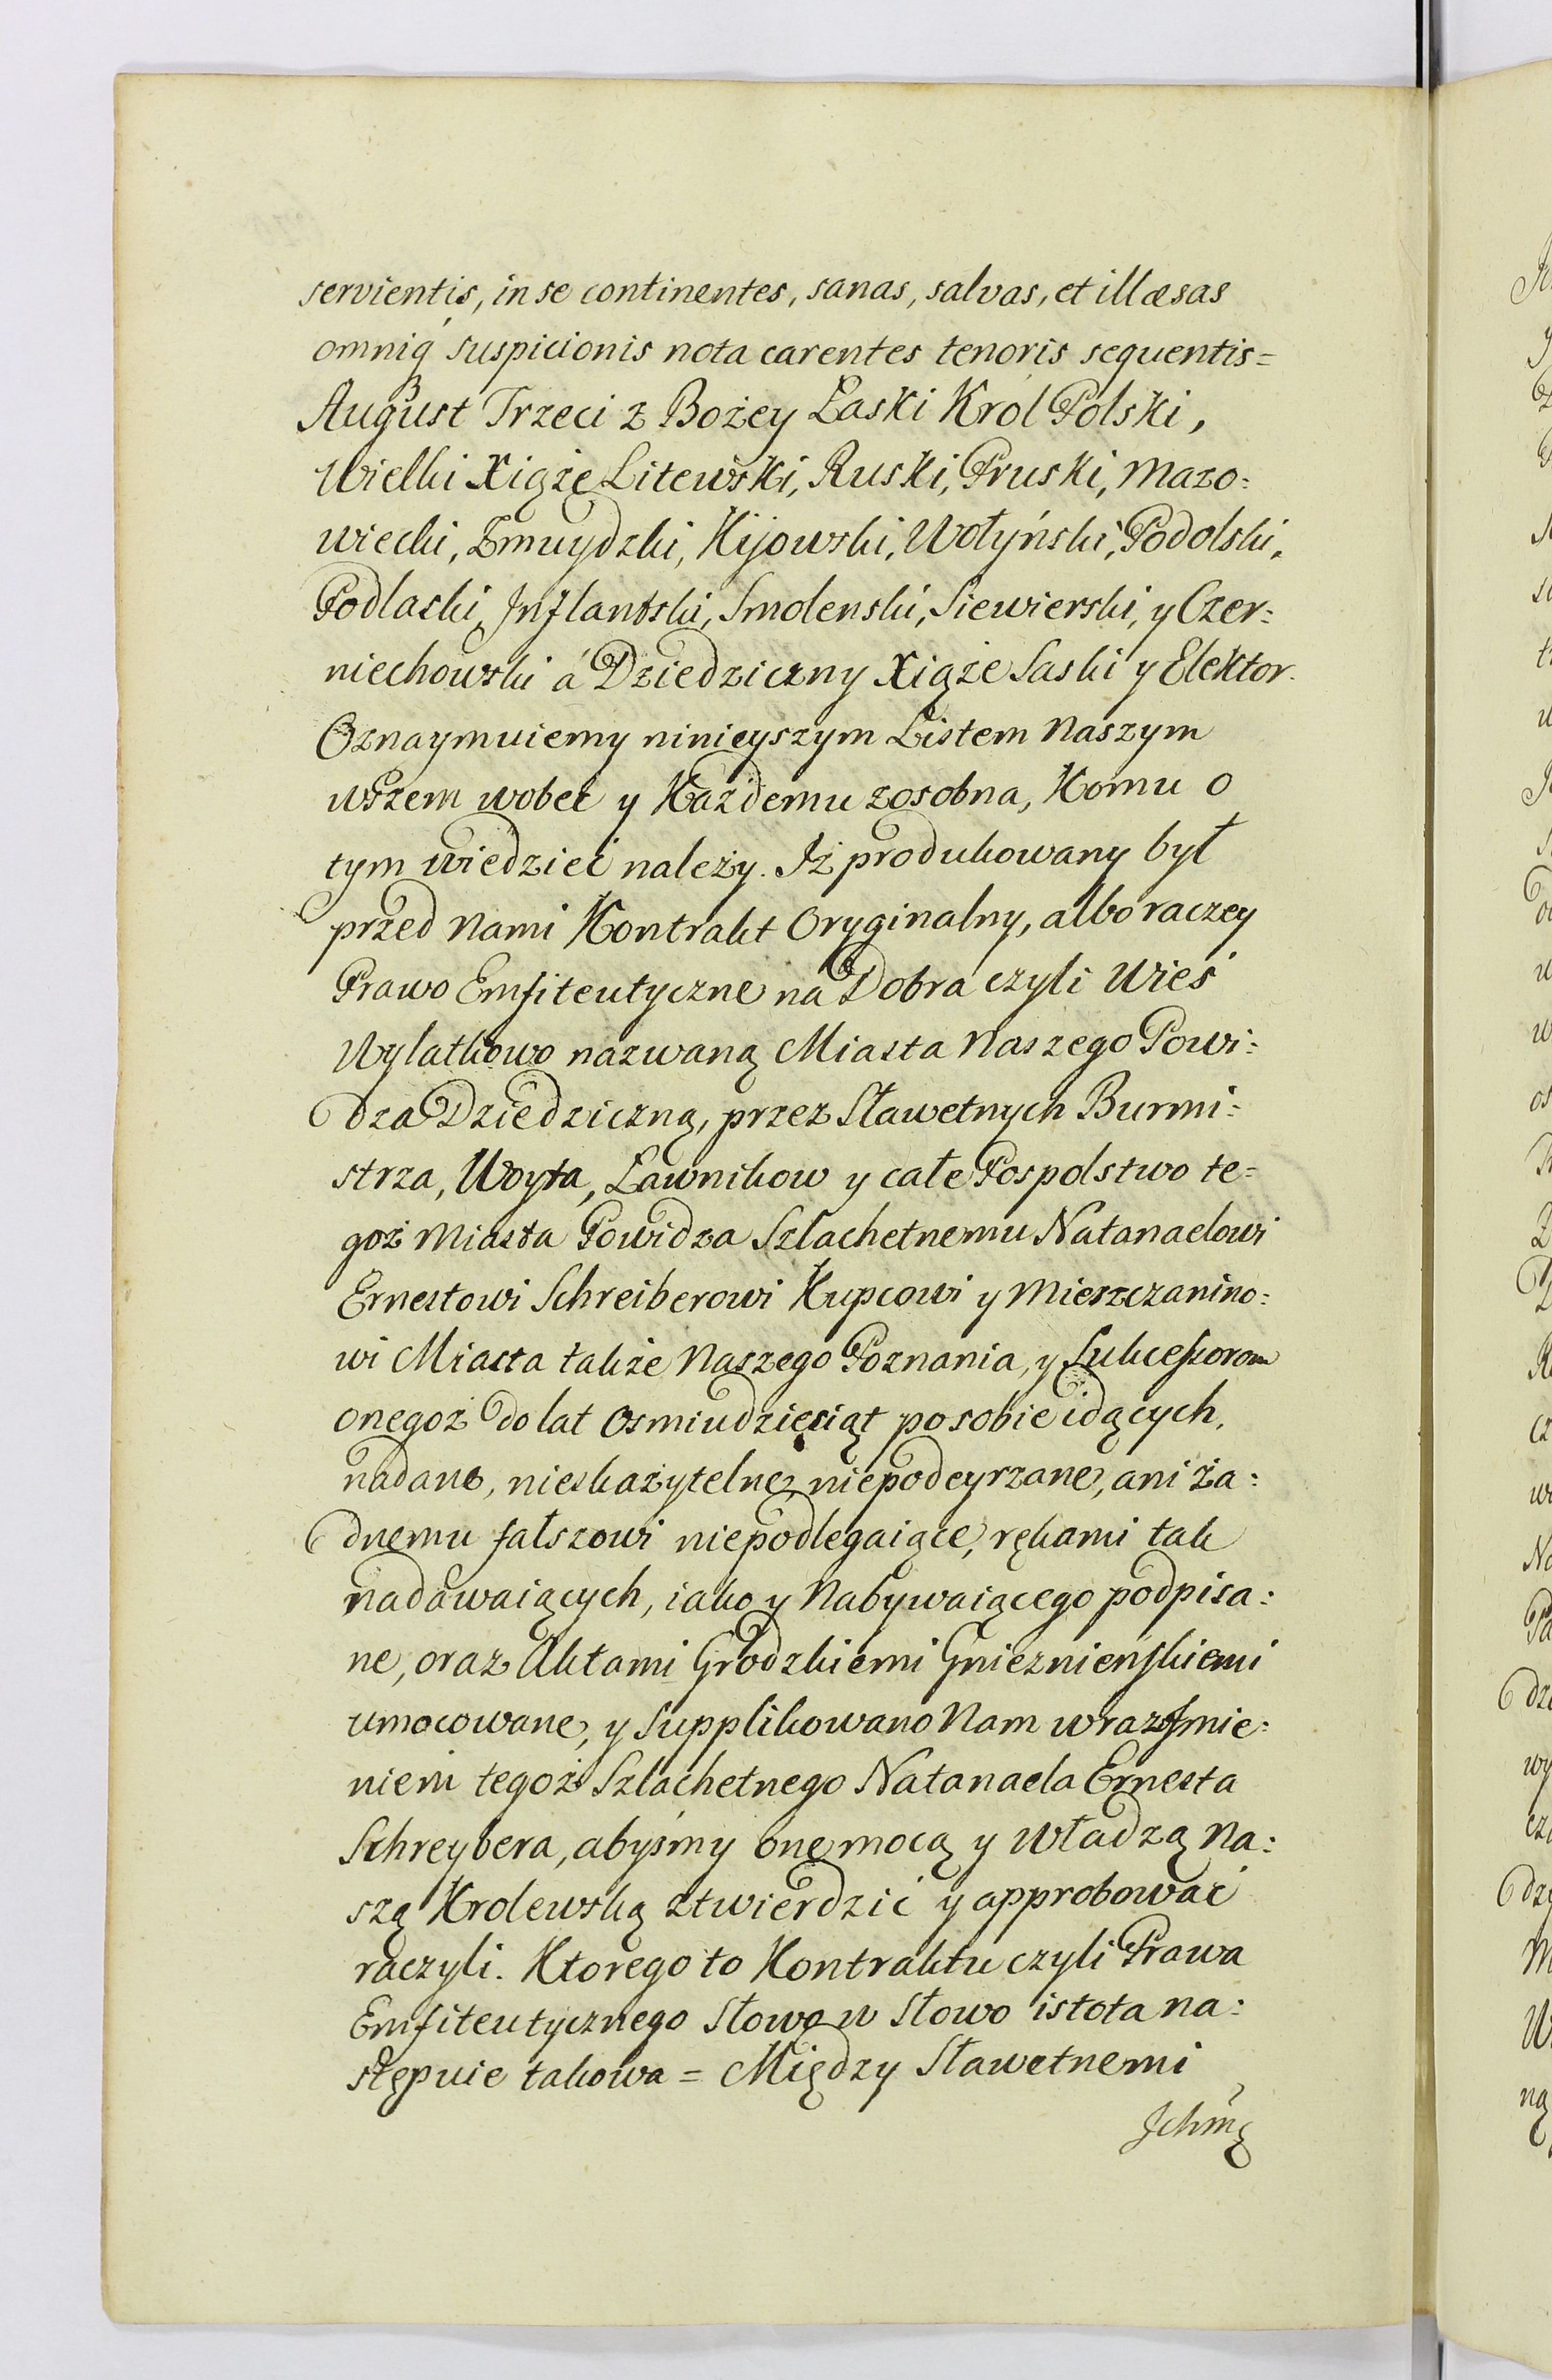 servientis, in se continentes, sanas, salvas, et illæsas
omniq́ suspicionis nota carentes tenoris sequentis=
August Trzeci z Bożey Łaski Krol Polski,
Wielki Xiąże Litewski, Ruski, Pruski, Mazo:
wiecki, Zmuydzki, Kijowski, Wołyński, Podolski,
Podlaski, Inflantski, Smolenski, Siewierski, y Czer:
niechowski á Dziedziczny Xiąże Saski y Elektor.
Oznaymuiemy ninieyszym Listem Naszym
wszem wobec y Każdemu zosobna, Komu o
tym wiedzieć należy. Iż produkowany był
przed Nami Kontrakt Oryginalny, albo raczey
Prawo Emfiteutyczne na Dobra czyli Wieś
Wylatkowo nazwaną Miasta Naszego Powi:
dza Dziedziczną, przez Sławetnych Burmi:
strza, Woyta, Ławnikow y całe Pospolstwo te=
goż Miasta Powidza Szlachetnemu Natanaelowi
Ernestowi Schreiberowi Kupcowi y Mieszczanino:
wi Miasta także Naszego Poznania, y Sukcessorom
onegoż do lat Osmiudziesiąt po sobie idących,
nadane, nieskażytelne, niepodeyrzane, ani ża:
dnemu fałszowi niepodlegaiące, rękami tak
nadawaiących, iako y Nabywaiącego podpisa:
ne, oraz Aktami Grodzkiemi Gnieznieńskiemi
umocowane, y Supplikowano Nam wraz Imie:
niem tegoż Szlachetnego Natanaela Ernesta
Schreybera, abyśmy one mocą y władzą Na:
szą Krolewską ztwierdzić y approbować
raczyli. Ktorego to Kontraktu czyli Prawa
Emfiteutycznego Słowo w Słowo istota na:
stępuie takowa = Między Sławetnemi
Ichmę